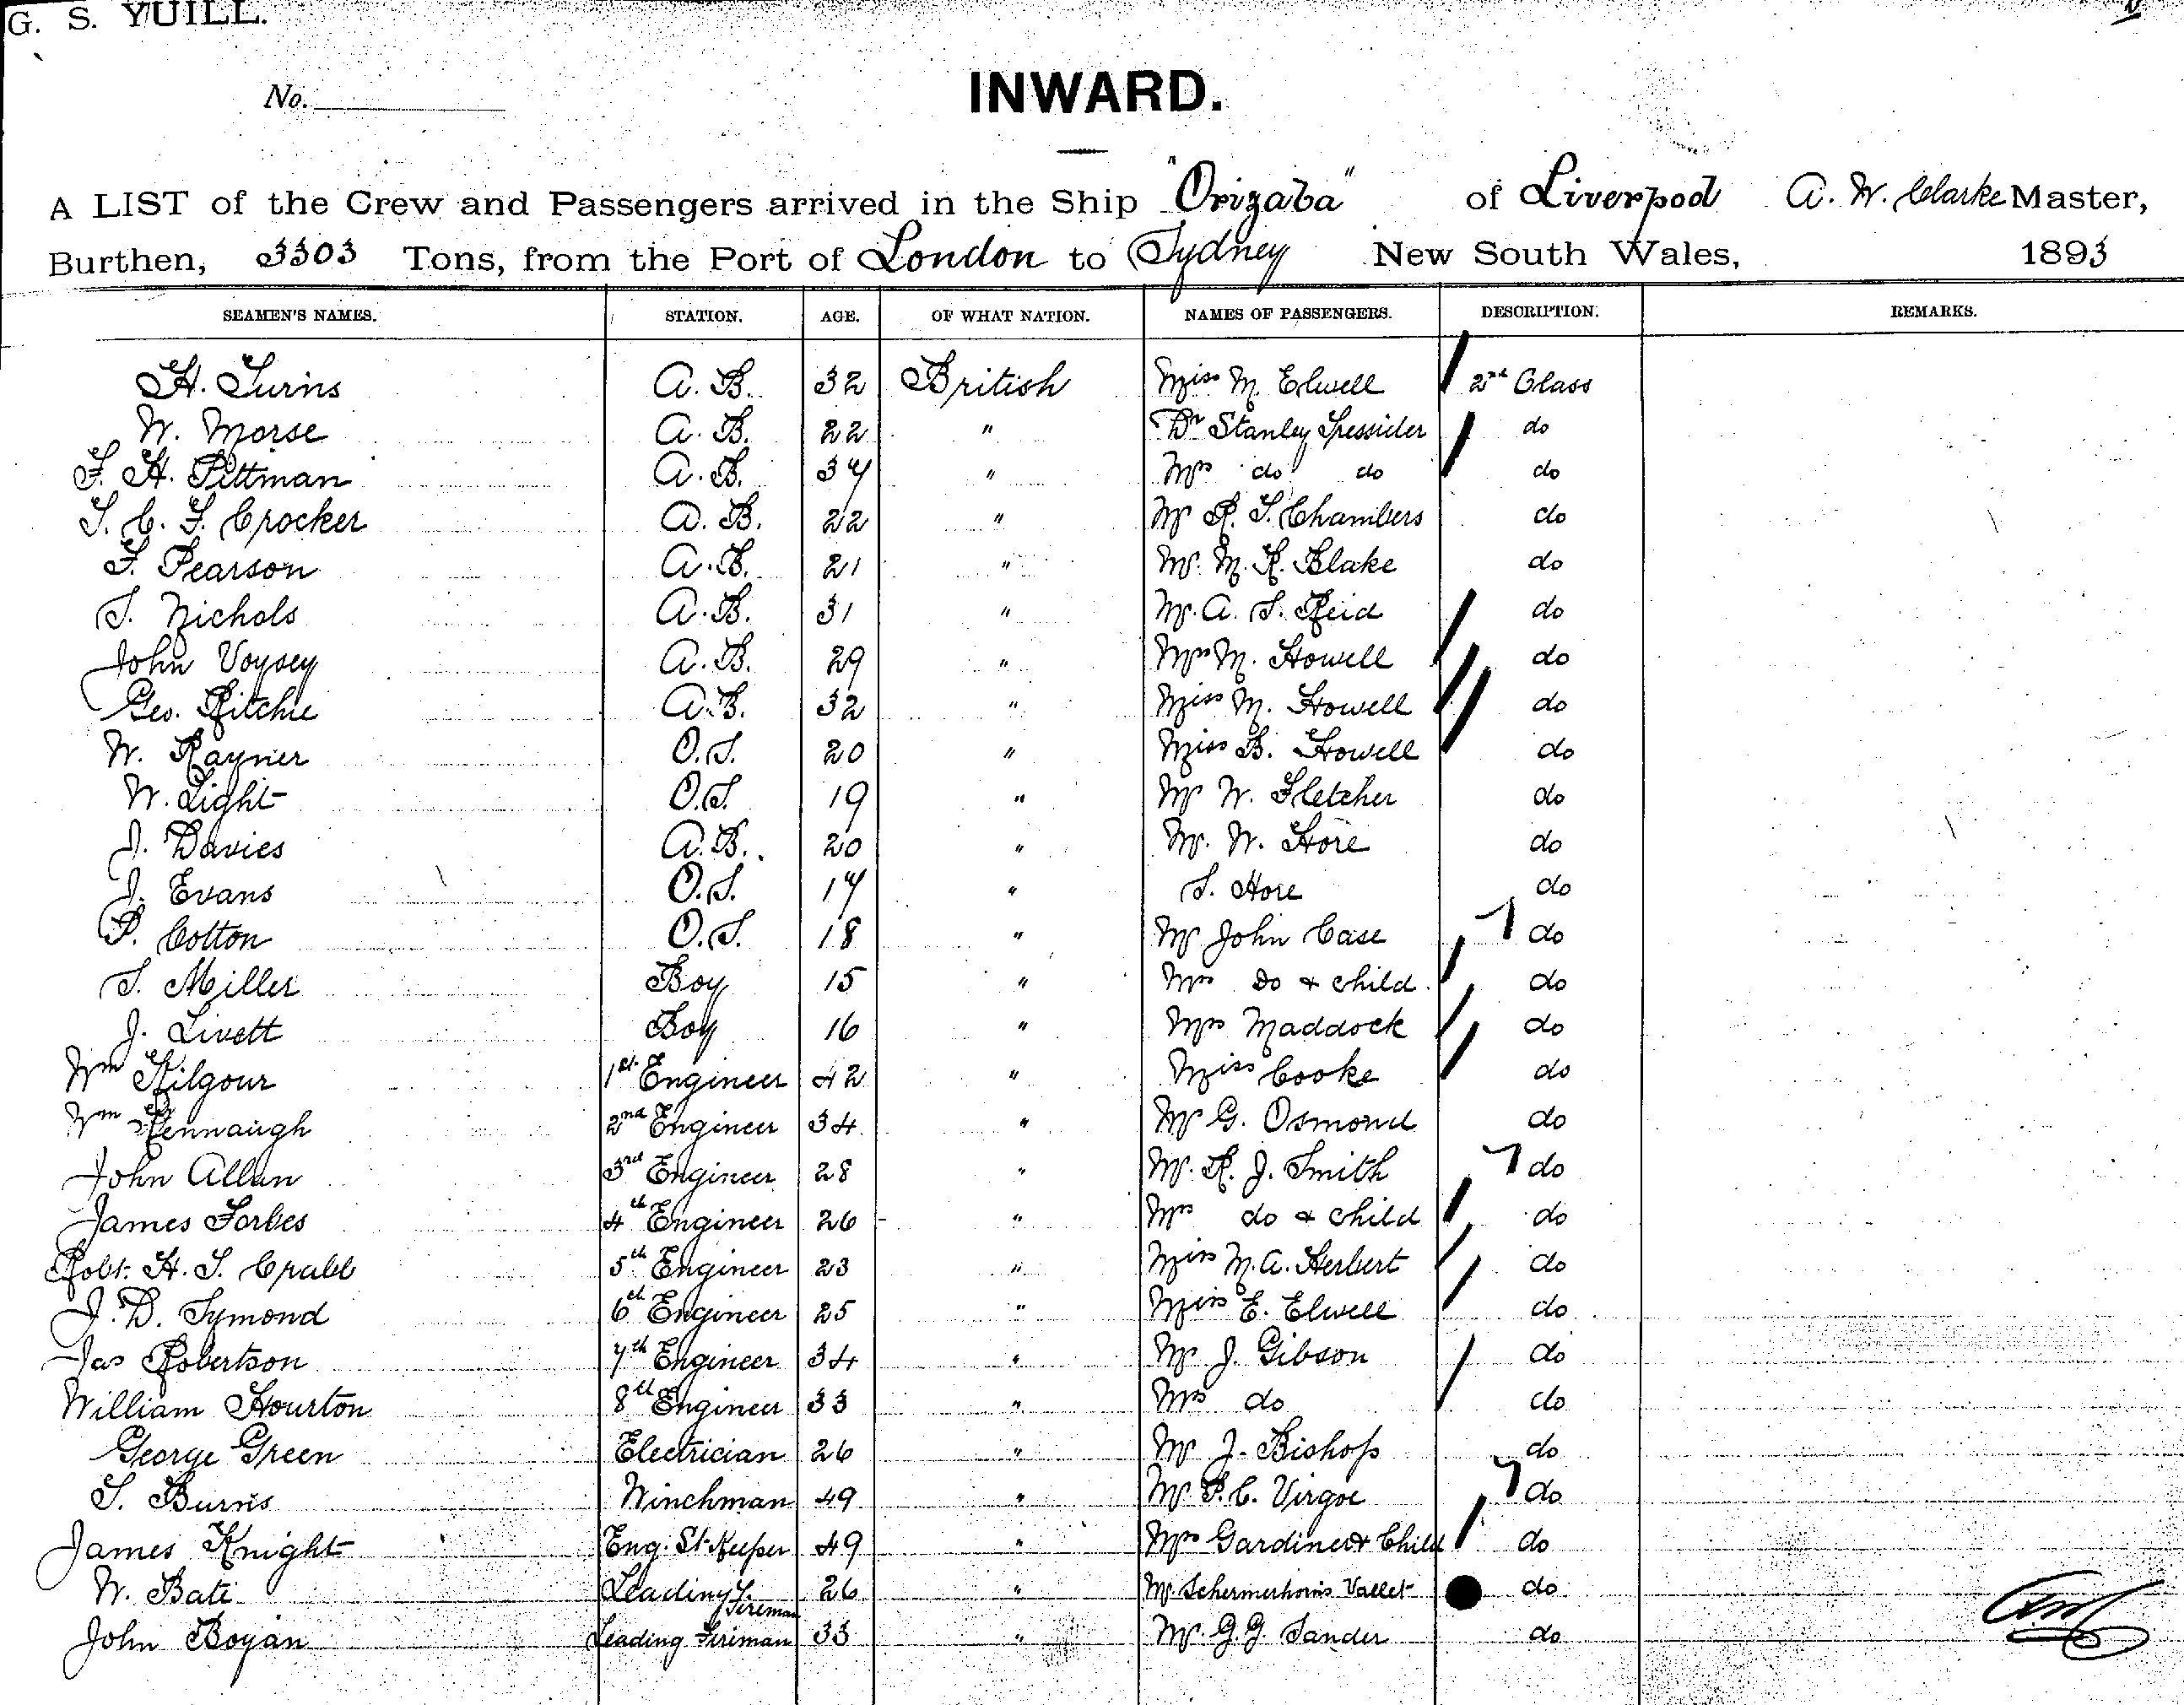 G. S. YUILL.
No.
INWARD.
A LIST of the Crew and Passengers arrived in the Ship "Orizaba" of Liverpool A. W. Clarke Master,
Burthen, 3303 Tons, from the Port of London to Sydney New South Wales, 1893
SEAMEN'S NAMES. STATION. AGE. OF WHAT NATION. NAMES OF PASSENGERS. DESCRIPTION. REMARKS.
H. A. B. 32 British Miss M. Elwell 2nd Class
W. Morse A. B. 22 " Dr Stanley do
F. H. Pittman A. B. 34 " Mrs do do do
T. C. F. Crocker A. B. 22 " Mr R. T. Chambers do
F. Pearson A. B. 21 " Mr. M. R. Blake do
T. Nichols A. B. 31 " Mr. A. S. Reid do
John Voysey A. B. 29 " Mrs M. Howell do
Geo. Ritchie A. B. 32 " Miss M. Howell do
W. Rayner O. S. 20 " Miss B. Howell do
W. Light O. S. 19 " Mr W. Fletcher do
J. Davies A. B. 20 " Mr. W. Hore do
J. Evans O. S. 17 " S. Hore do
P. Cotton O. S. 18 " Mr John Case do
S. Miller Boy 15 " Mrs Do & child do
J. Livett Boy 16 " Mrs Maddock do
Wm Kilgour 1st Engineer 42 " Miss Cooke do
Wm Kennaugh 2nd Engineer 34 " Mr G. Osmond do
John Allan 3rd Engineer 28 " Mr. R. J. Smith do
James Forbes 4th Engineer 26 " Mrs do & child do
Robt. H. S. Crabb 5th Engineer 23 " Miss M. A. Herbert do
J. D. Symond 6th Engineer 25 " Miss E. Elwell do
Jas Robertson 7th Engineer 34 " Mr J. Gibson do
William Hourton 8th Engineer 33 " Mrs do do
George Green Electrician 26 " Mr J. Bishop do
T. Burns Winchman 49 " Mr. P. C. Virgoe do
James Knight Eng. St. Keeper 49 " Mrs Gardiner & Child do
W. Bate Leading Fireman 26 " Mr. Schermerhorns Vallet do
John Boyan Leading Fireman 33 " Mr. G. G. Sander do